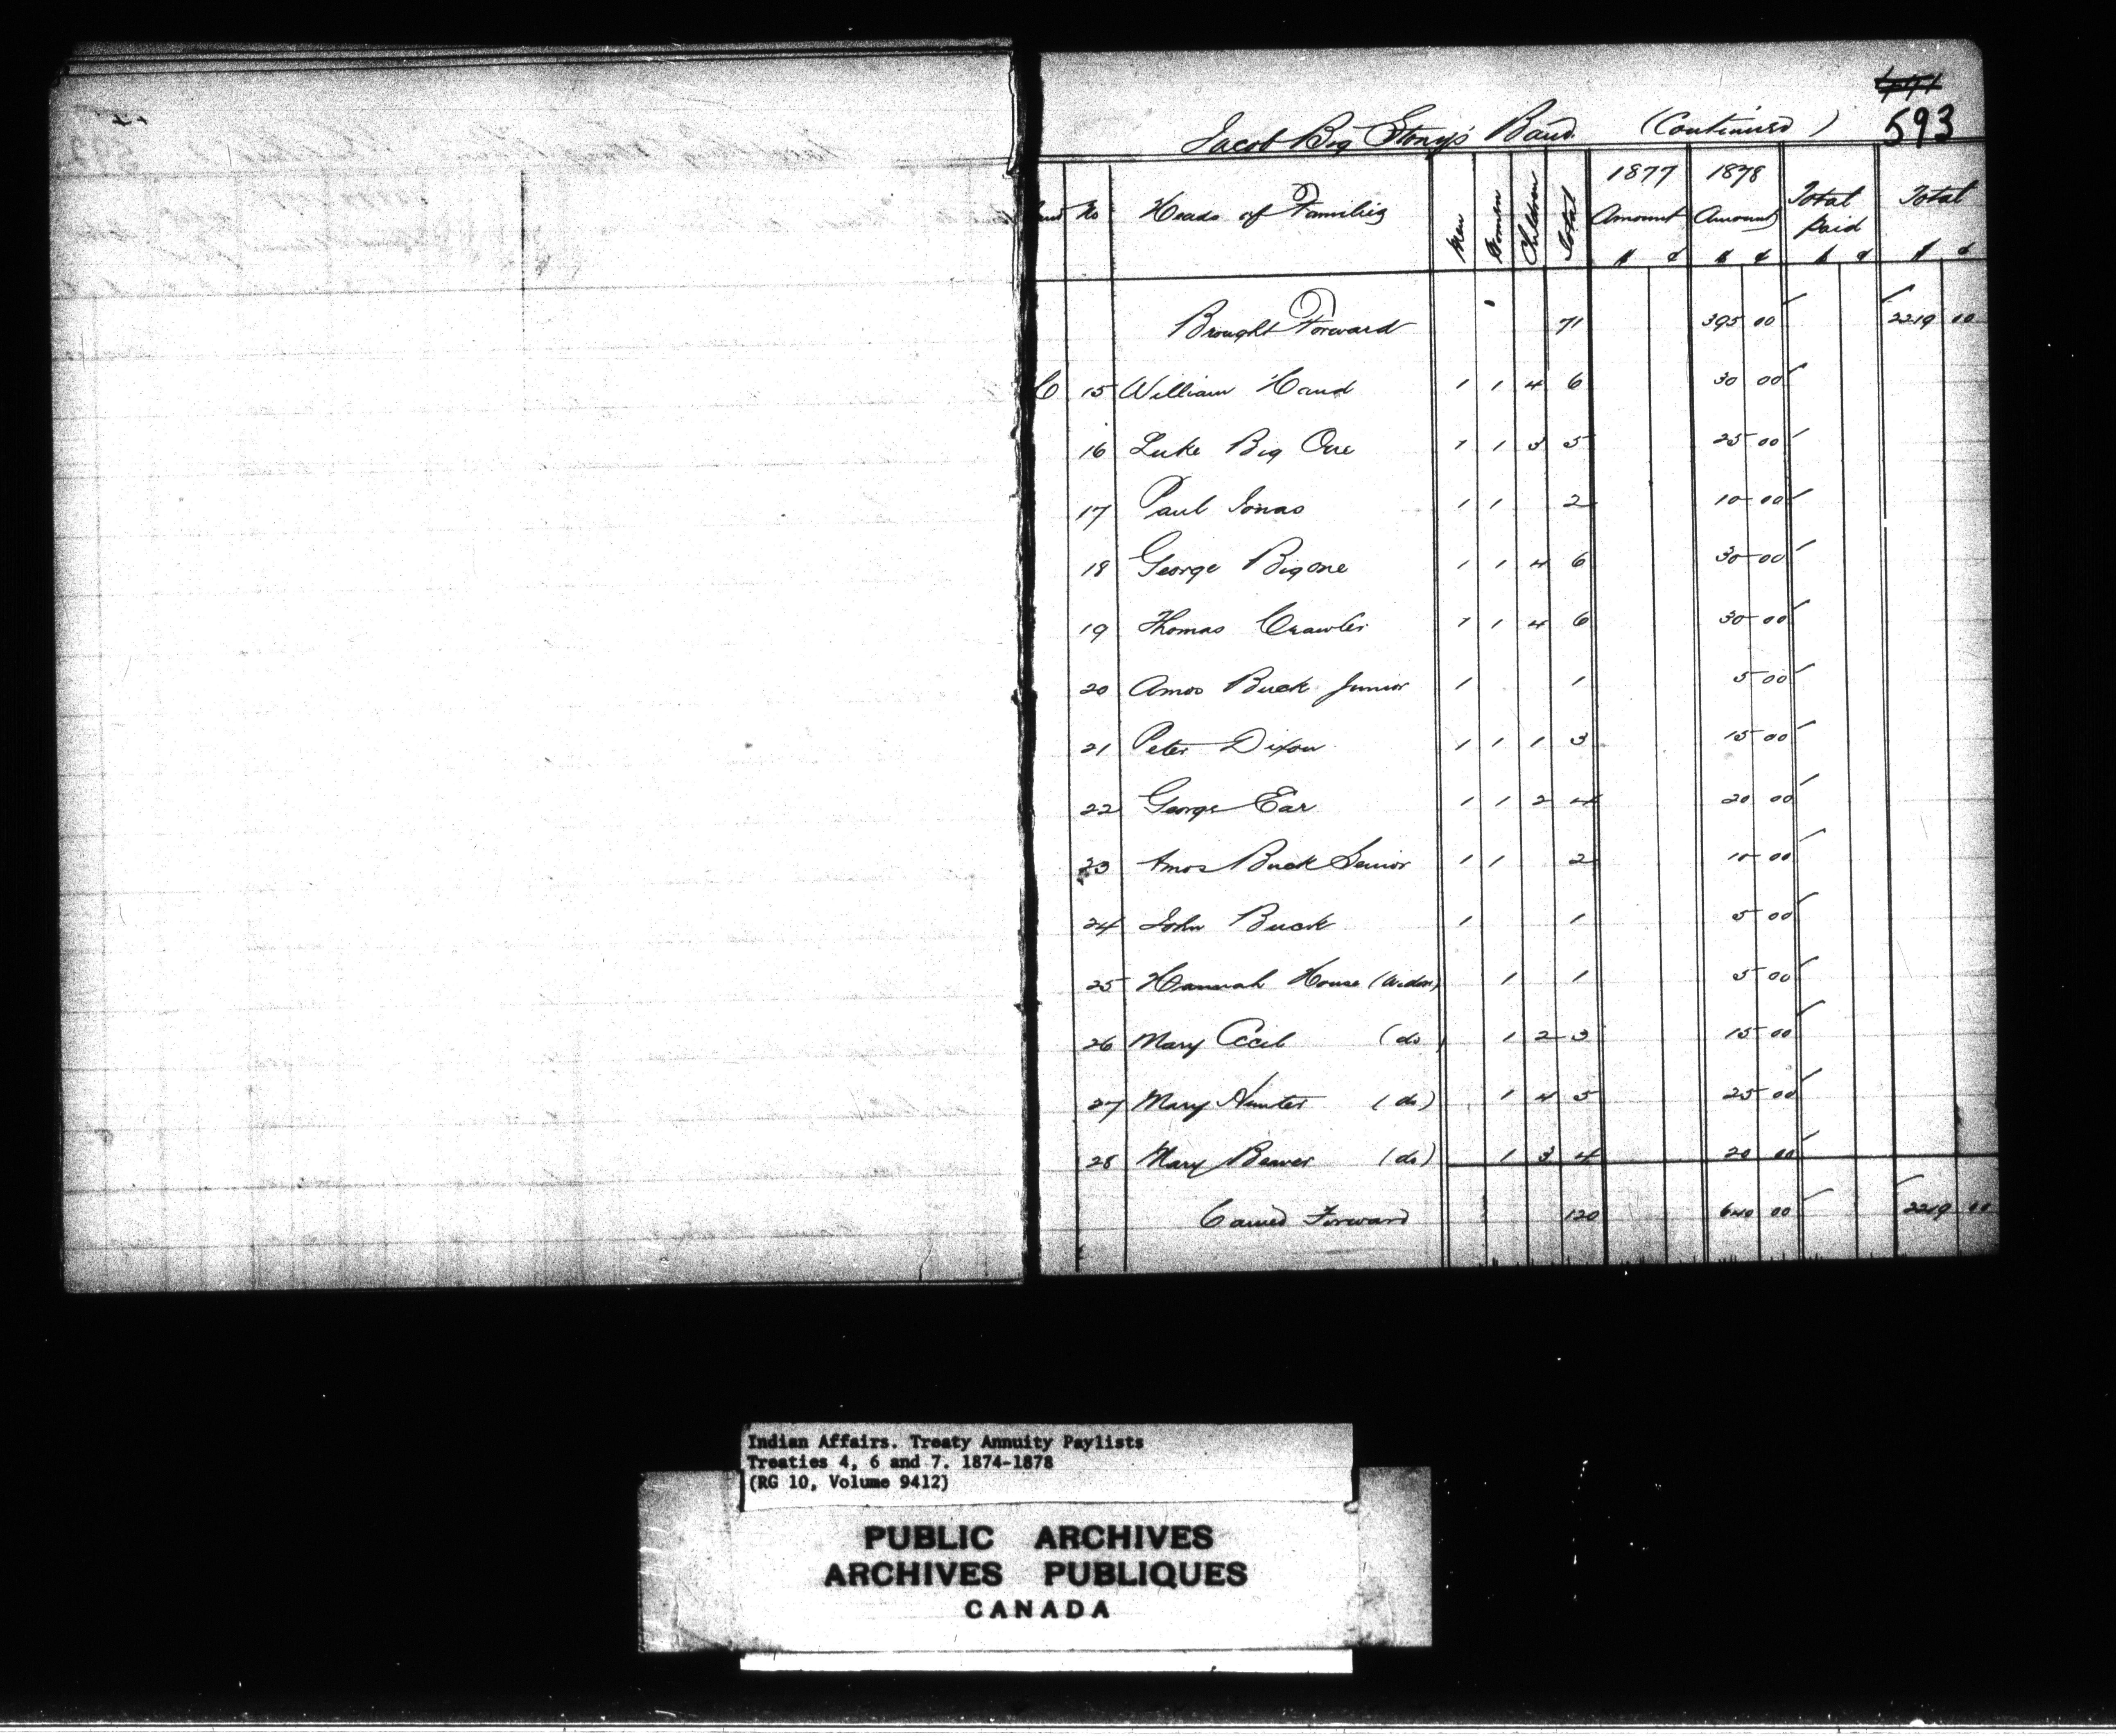 593
Jacob Big Stony's Band (Continued)
Band No Heads of Families Men Women Children Total 1877 Amount $ ¢ 1878 Amount $ ¢ Total Paid $ ¢ Total $ ¢
Brought Forward 71 395 00 2219 00
C 15 William Hand 1 1 4 6 30 00
16 Luke Big One 1 1 3 5 25 00
17 Paul Jonas 1 1 2 10 00
18 George Bigone 1 1 4 6 30 00
19 Thomas Crawler 1 1 4 6 30 00
20 Amos Buck Junior 1 1 5 00
21 Peter Dixon 1 1 1 3 15 00
22 George Ear 1 1 2 4 20 00
23 Amos Buck Senior 1 1 2 10 00
24 John Buck 1 1 5 00
25 Hannah House (Widow) 1 1 5 00
26 Mary Cecil (do) 1 2 3 15 00
27 Mary Hunter (do) 1 4 5 25 00
28 Mary Beaver (do) 1 3 4 20 00
Carried Forward 120 640 00 2219 00
Indian Affairs. Treaty Annuity Paylists
Treaties 4, 6 and 7. 1874-1878
(RG 10, Volume 9412)
PUBLIC ARCHIVES
ARCHIVES PUBLIQUES
CANADA